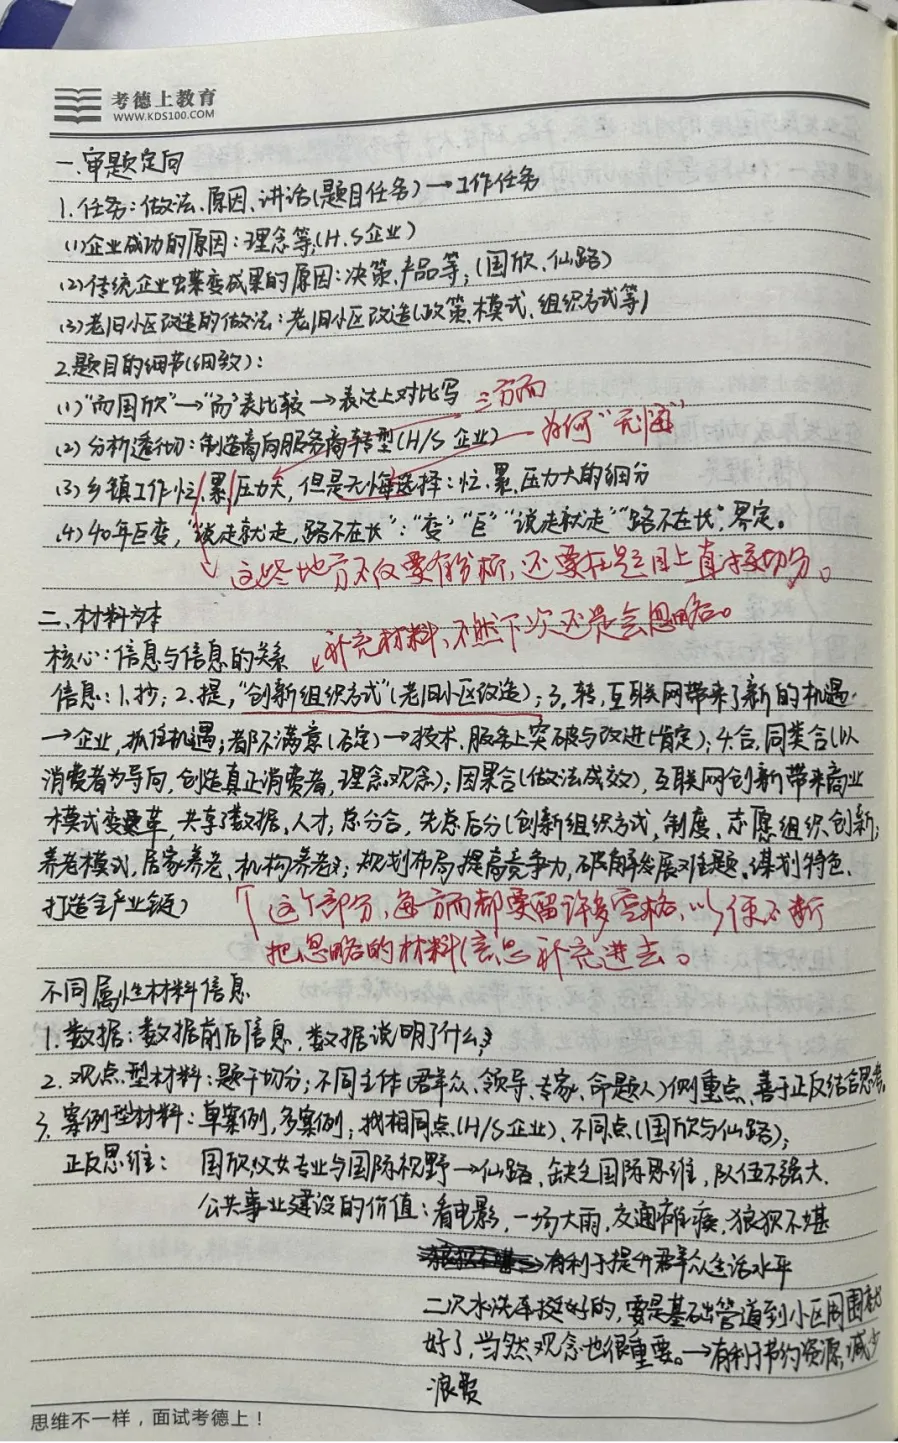 考德上教育
WWW.KDS100.COM
一.审题定向
1.任务:做法.原因.讲话(题目任务)→工作任务
(1)企业成功的原因:理念等;(H.S企业)
(2)传统企业变成果的原因:决策.产品等;(国欣、仙路)
(3)老旧小区改造的做法:老旧小区改造(政策.模式、组织方式等)
2.题目的细节(细致):
(1)"而国欣"→"而"表比较→表达上对比写 三方面
(2)分析透彻:制造商向服务商转型(H/S企业) 为何"无悔"
(3)乡镇工作忙.累.压力大,但是无悔选择:忙.累.压力大的细分
(4)40年巨变,"说走就走,路不在长":"变""巨""说走就走""路不在长"界定。
这些地方不仅要有分析,还要在题目上直接切分。
二、材料为本
补充材料,不然下次还是会忽略。
核心:信息与信息的关系
信息:1.抄;2.提,"创新组织方式"(老旧小区改造);3,转,互联网带来了新的机遇
→企业,抓住机遇;都不满意(否定)→技术.服务上突破与改进(肯定);4.合,同类合(以
消费者为导向,创造真正消费者,理念观念);因果合(做法成效),互联网创新带来商业
模式变革,共享了数据、人才;总分合,先总后分(创新组织方式,制度、志愿组织创新;
养老模式,居家养老、机构养老);规划布局,提高竞争力,破解发展难题.谋划特色、
打造全产业链)
这个部分,每方面都要留许多空格,以便不断
把忽略的材料信息补充进去。
不同属性材料信息
1.数据:数据前后信息,数据说明了什么;
2.观点型材料:题干切分;不同主体(群众、领导、专家、命题人)侧重点、善于正反结合思考。
3.案例型材料:单案例,多案例;找相同点(H/S企业)、不同点(国欣与仙路);
正反思维: 国欣专业与国际视野→仙路、缺乏国际思维,队伍不强大.
公共事业建设的价值:看电影,一场大雨,交通瘫痪,狼狈不堪
→有利于提升群众生活水平
二次水洗车挺好的,要是基础管道到小区周围
好了,当然观念也很重要。→有利于节约资源,减少
浪费
思维不一样,面试考德上!